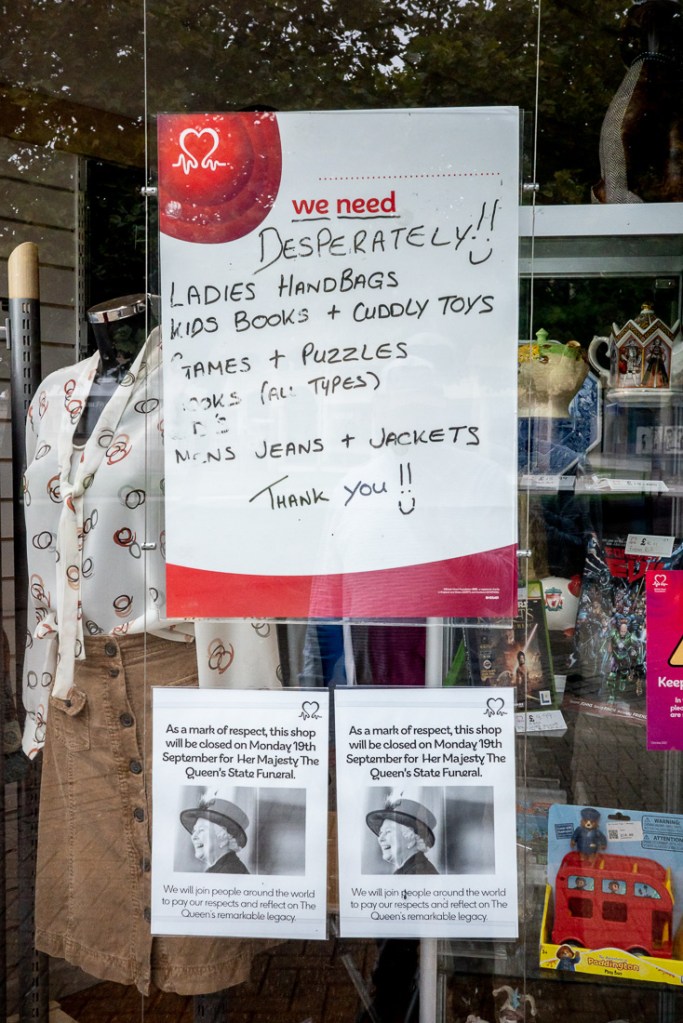 we need
DESPERATELY!!
LADIES HANDBAGS
KIDS BOOKS + CUDDLY TOYS
GAMES + PUZZLES
BOOKS (ALL TYPES)
MENS JEANS + JACKETS
THANK YOU!!
As a mark of respect, this shop
will be closed on Monday 19th
September for Her Majesty The
Queen's State Funeral.
We will join people around the world
to pay our respects and reflect on The
Queen's remarkable legacy.
As a mark of respect, this shop
will be closed on Monday 19th
September for Her Majesty The
Queen's State Funeral.
We will join people around the world
to pay our respects and reflect on The
Queen's remarkable legacy.
Keep
WARNING
ATTENTION
Paddington